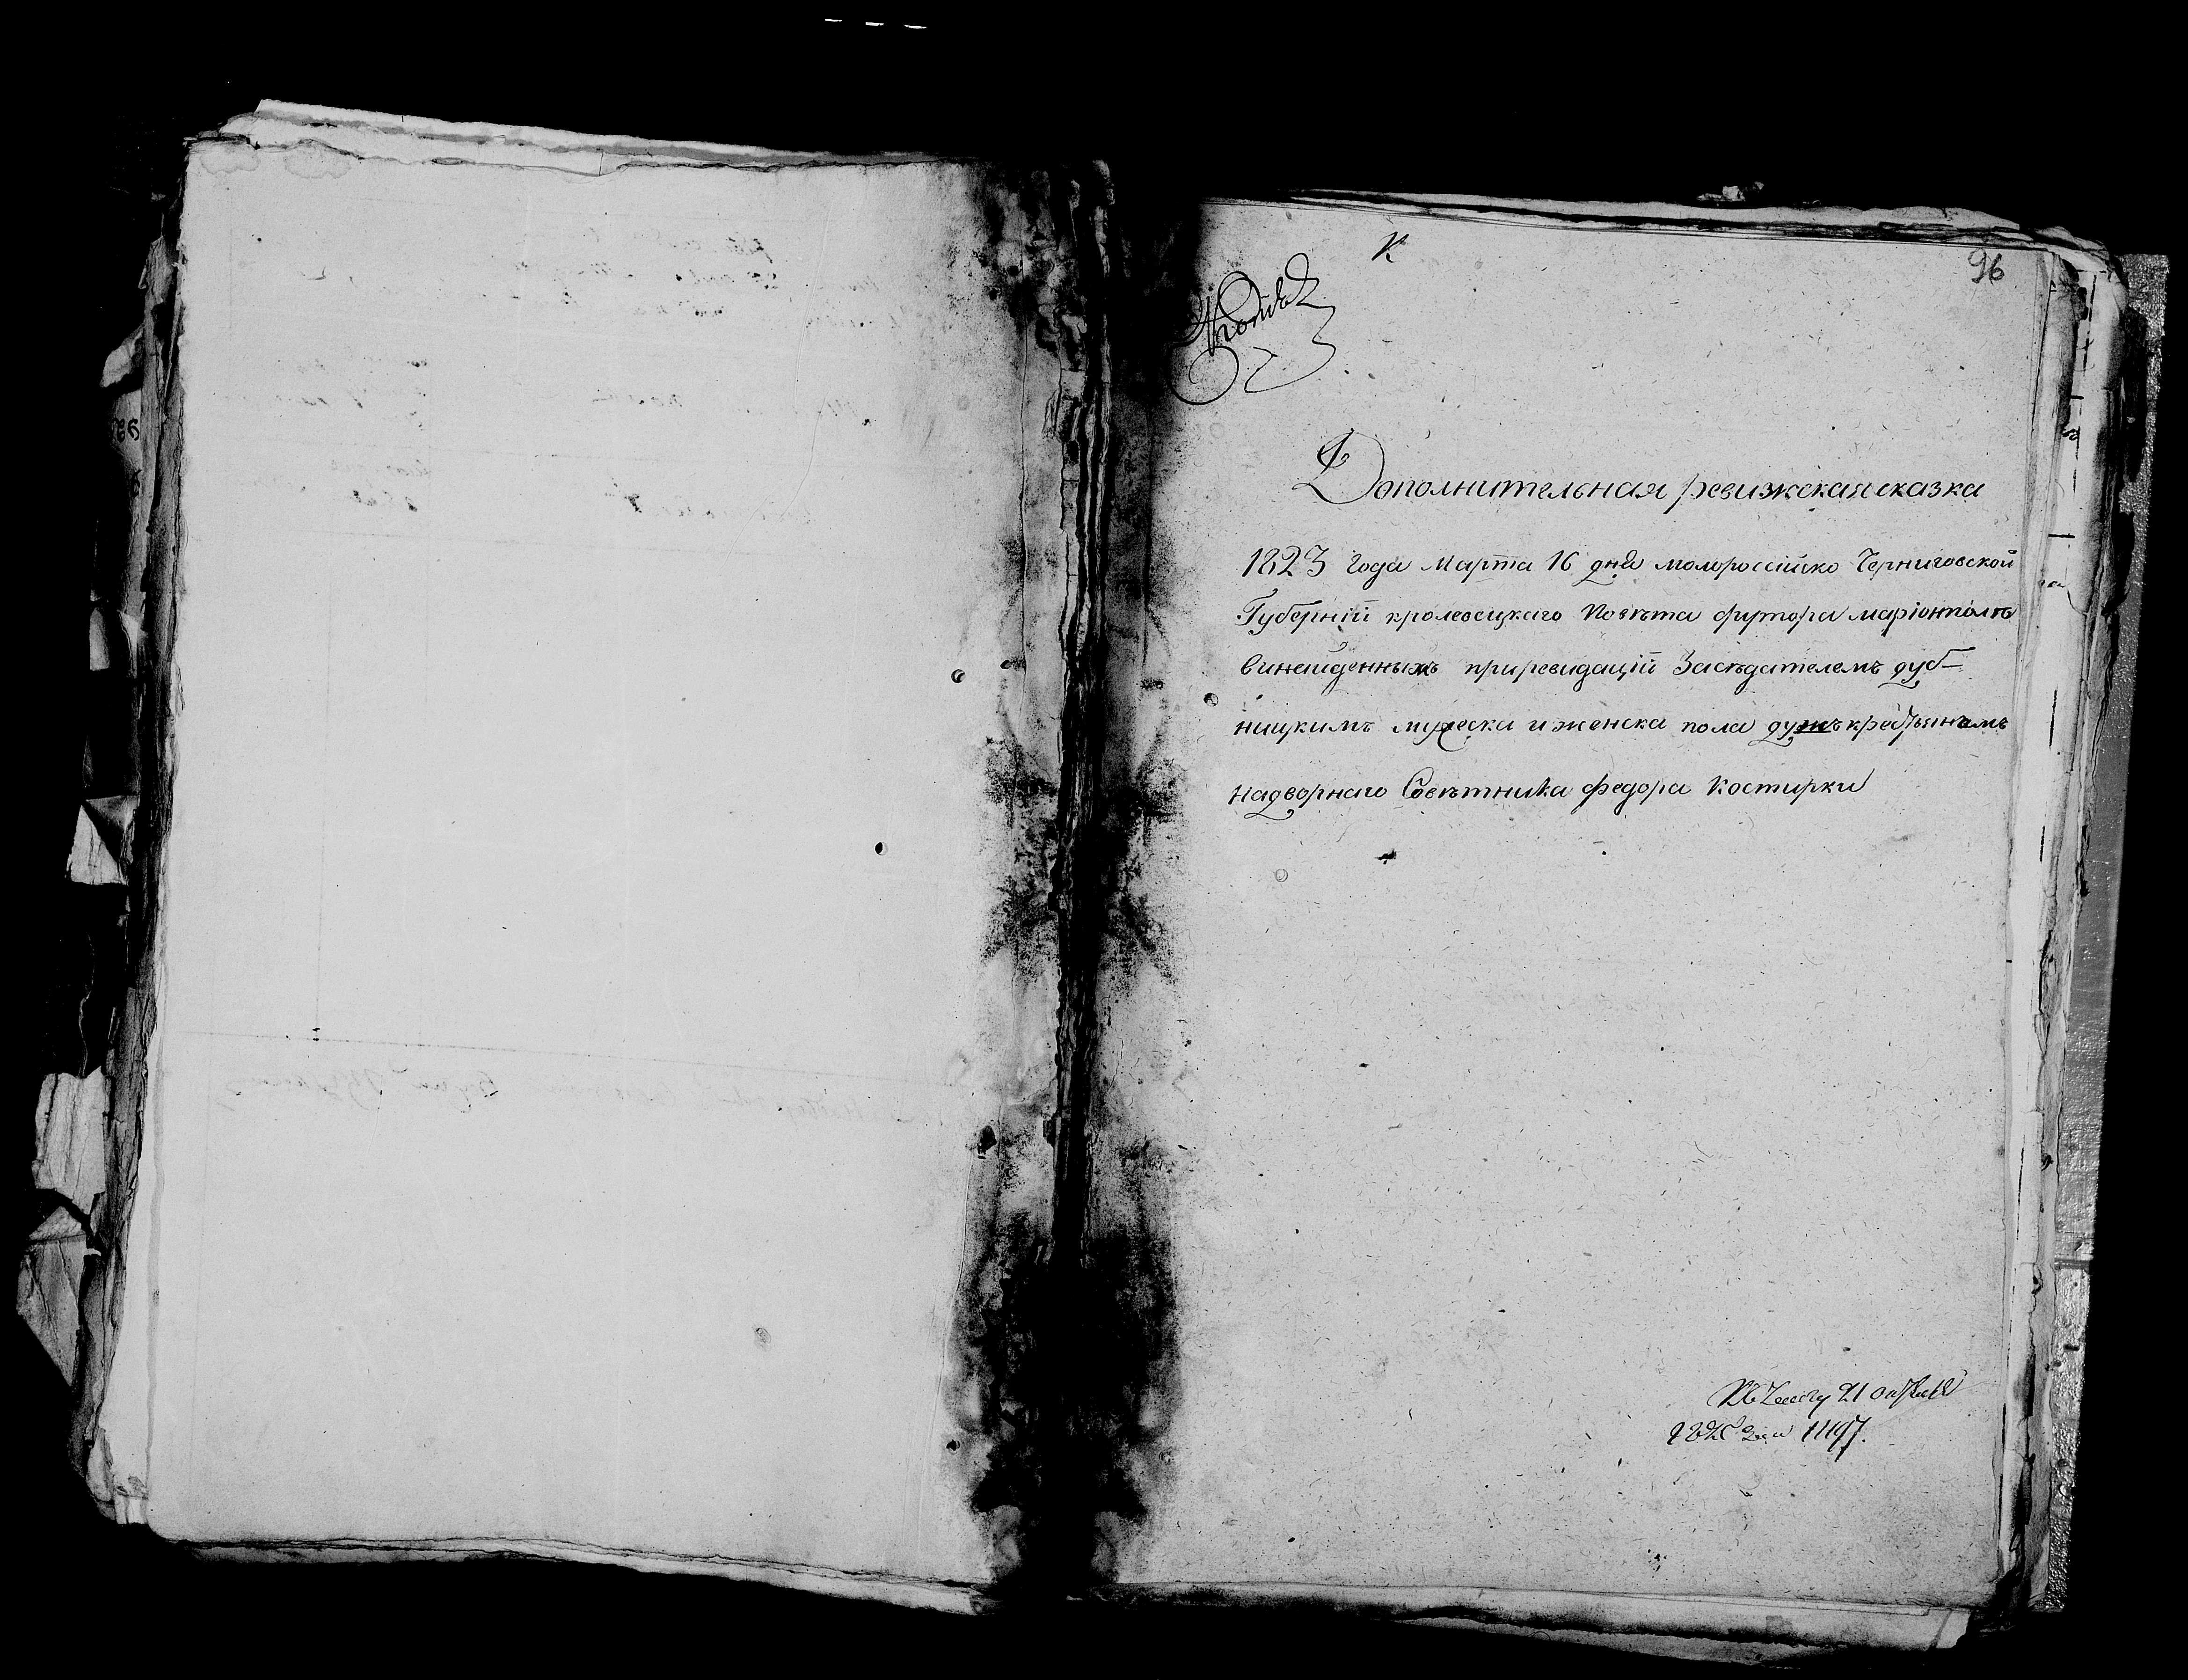 К
96
Дополнительная ревижская сказка
1823 года Марта 16 дня молоросейско Черниговской
Губерніи кролевецкаго Повѣта футора маріонполя
винайденныхъ приревидаціи Засѣдателемъ дуб-
ницкимъ мужеска и женска пола душъ крестьянамъ
надворнаго Совѣтника федора Костирки
21 октября